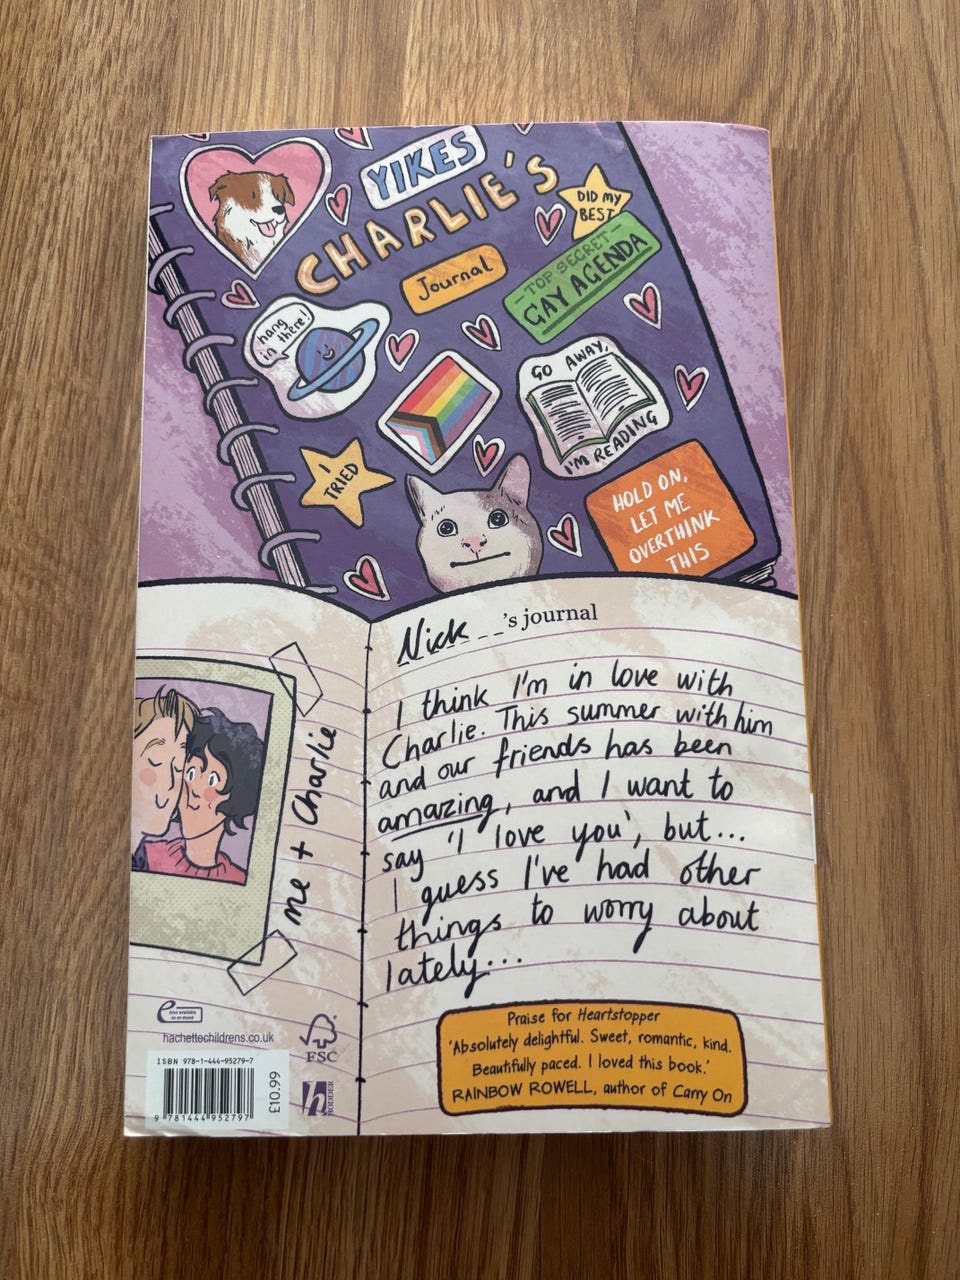 YIKES
CHARLIE'S
Journal
DID MY
BEST
-TOP SECRET-
GAY AGENDA
hang
in there!
GO AWAY,
I'M READING
I
TRIED
HOLD ON,
LET ME
OVERTHINK
THIS
me + Charlie
Nick's journal
I think I'm in love with
Charlie. This summer with him
and our friends has been
amazing, and I want to
say 'I love you', but...
I guess I've had other
things to worry about
lately...
Also available
as an ebook
hachettechildrens.co.uk
FSC
ISBN 978-1-444-95279-7
9 781444 952797
£10.99
h
HODDER
Praise for Heartstopper
'Absolutely delightful. Sweet, romantic, kind.
Beautifully paced. I loved this book.'
RAINBOW ROWELL, author of Carry On